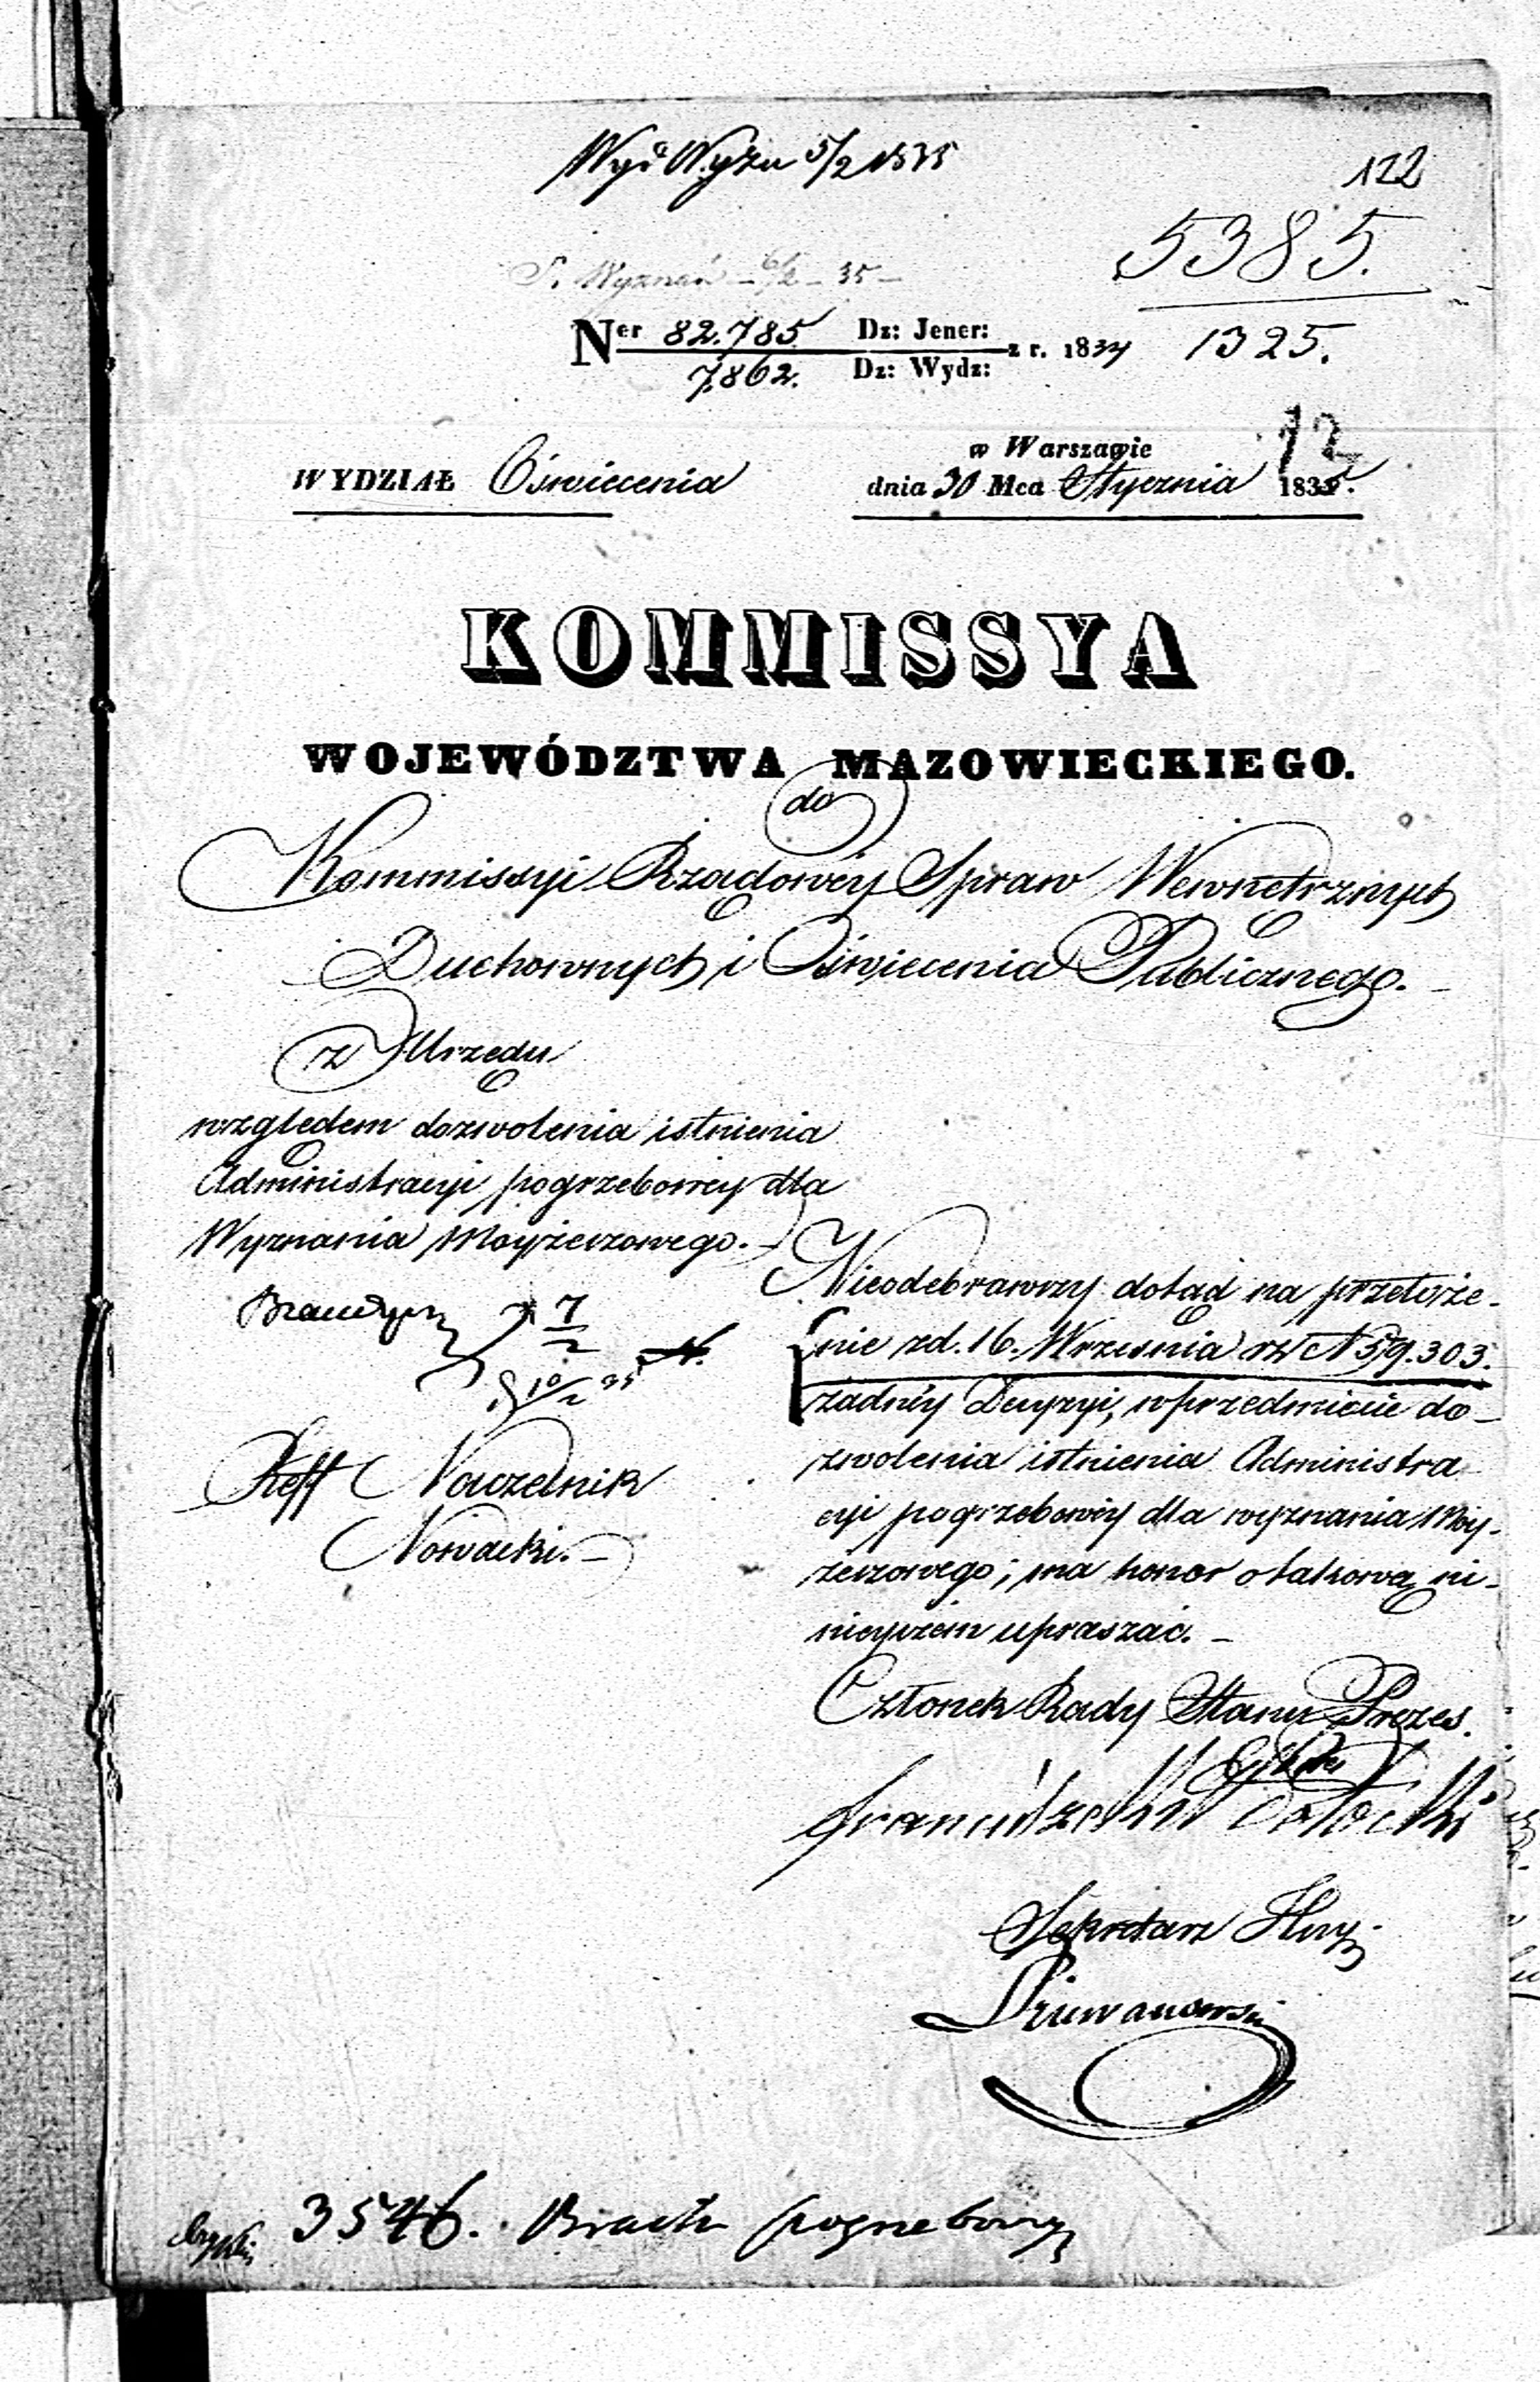 Wyd Wyzn 5/2 1835
122
5385.
W. Wyznań – 6/2 – 35 –
Ner 82.785 Dz: Jener: z r. 1834 1325.
7,862. Dz: Wydz:
12
w Warszawie
WYDZIAŁ Oświecenia dnia 30 Mca Stycznia 1835.
KOMMISSYA
WOJEWÓDZTWA MAZOWIECKIEGO.
do
Kommissyi Rządowéy Spraw Wewnętrznych
Duchownych i Oświecenia Publicznego. –
z Urzędu
względem dozwolenia istnienia
Administracyi pogrzebowey dla
Wyznania Moyżeszowego. –
Nieodebrawszy dotąd na przełoże-
nie z d. 16. Września rz N 59.303.
żadnéy Decyzyi, w przedmiocie do-
zwolenia istnienia Administra
cyi pogrzebowéy dla wyznania Moy-
żeszowego; ma honor o takową ni-
nieyszém upraszać. –
7/2
10/2 35
Reff Naczelnik
Nowacki. –
Członek Rady Stanu Prezes.
Franciszek Potocki
Sekretarz Jlny
3546. Bractw pogrzebowy